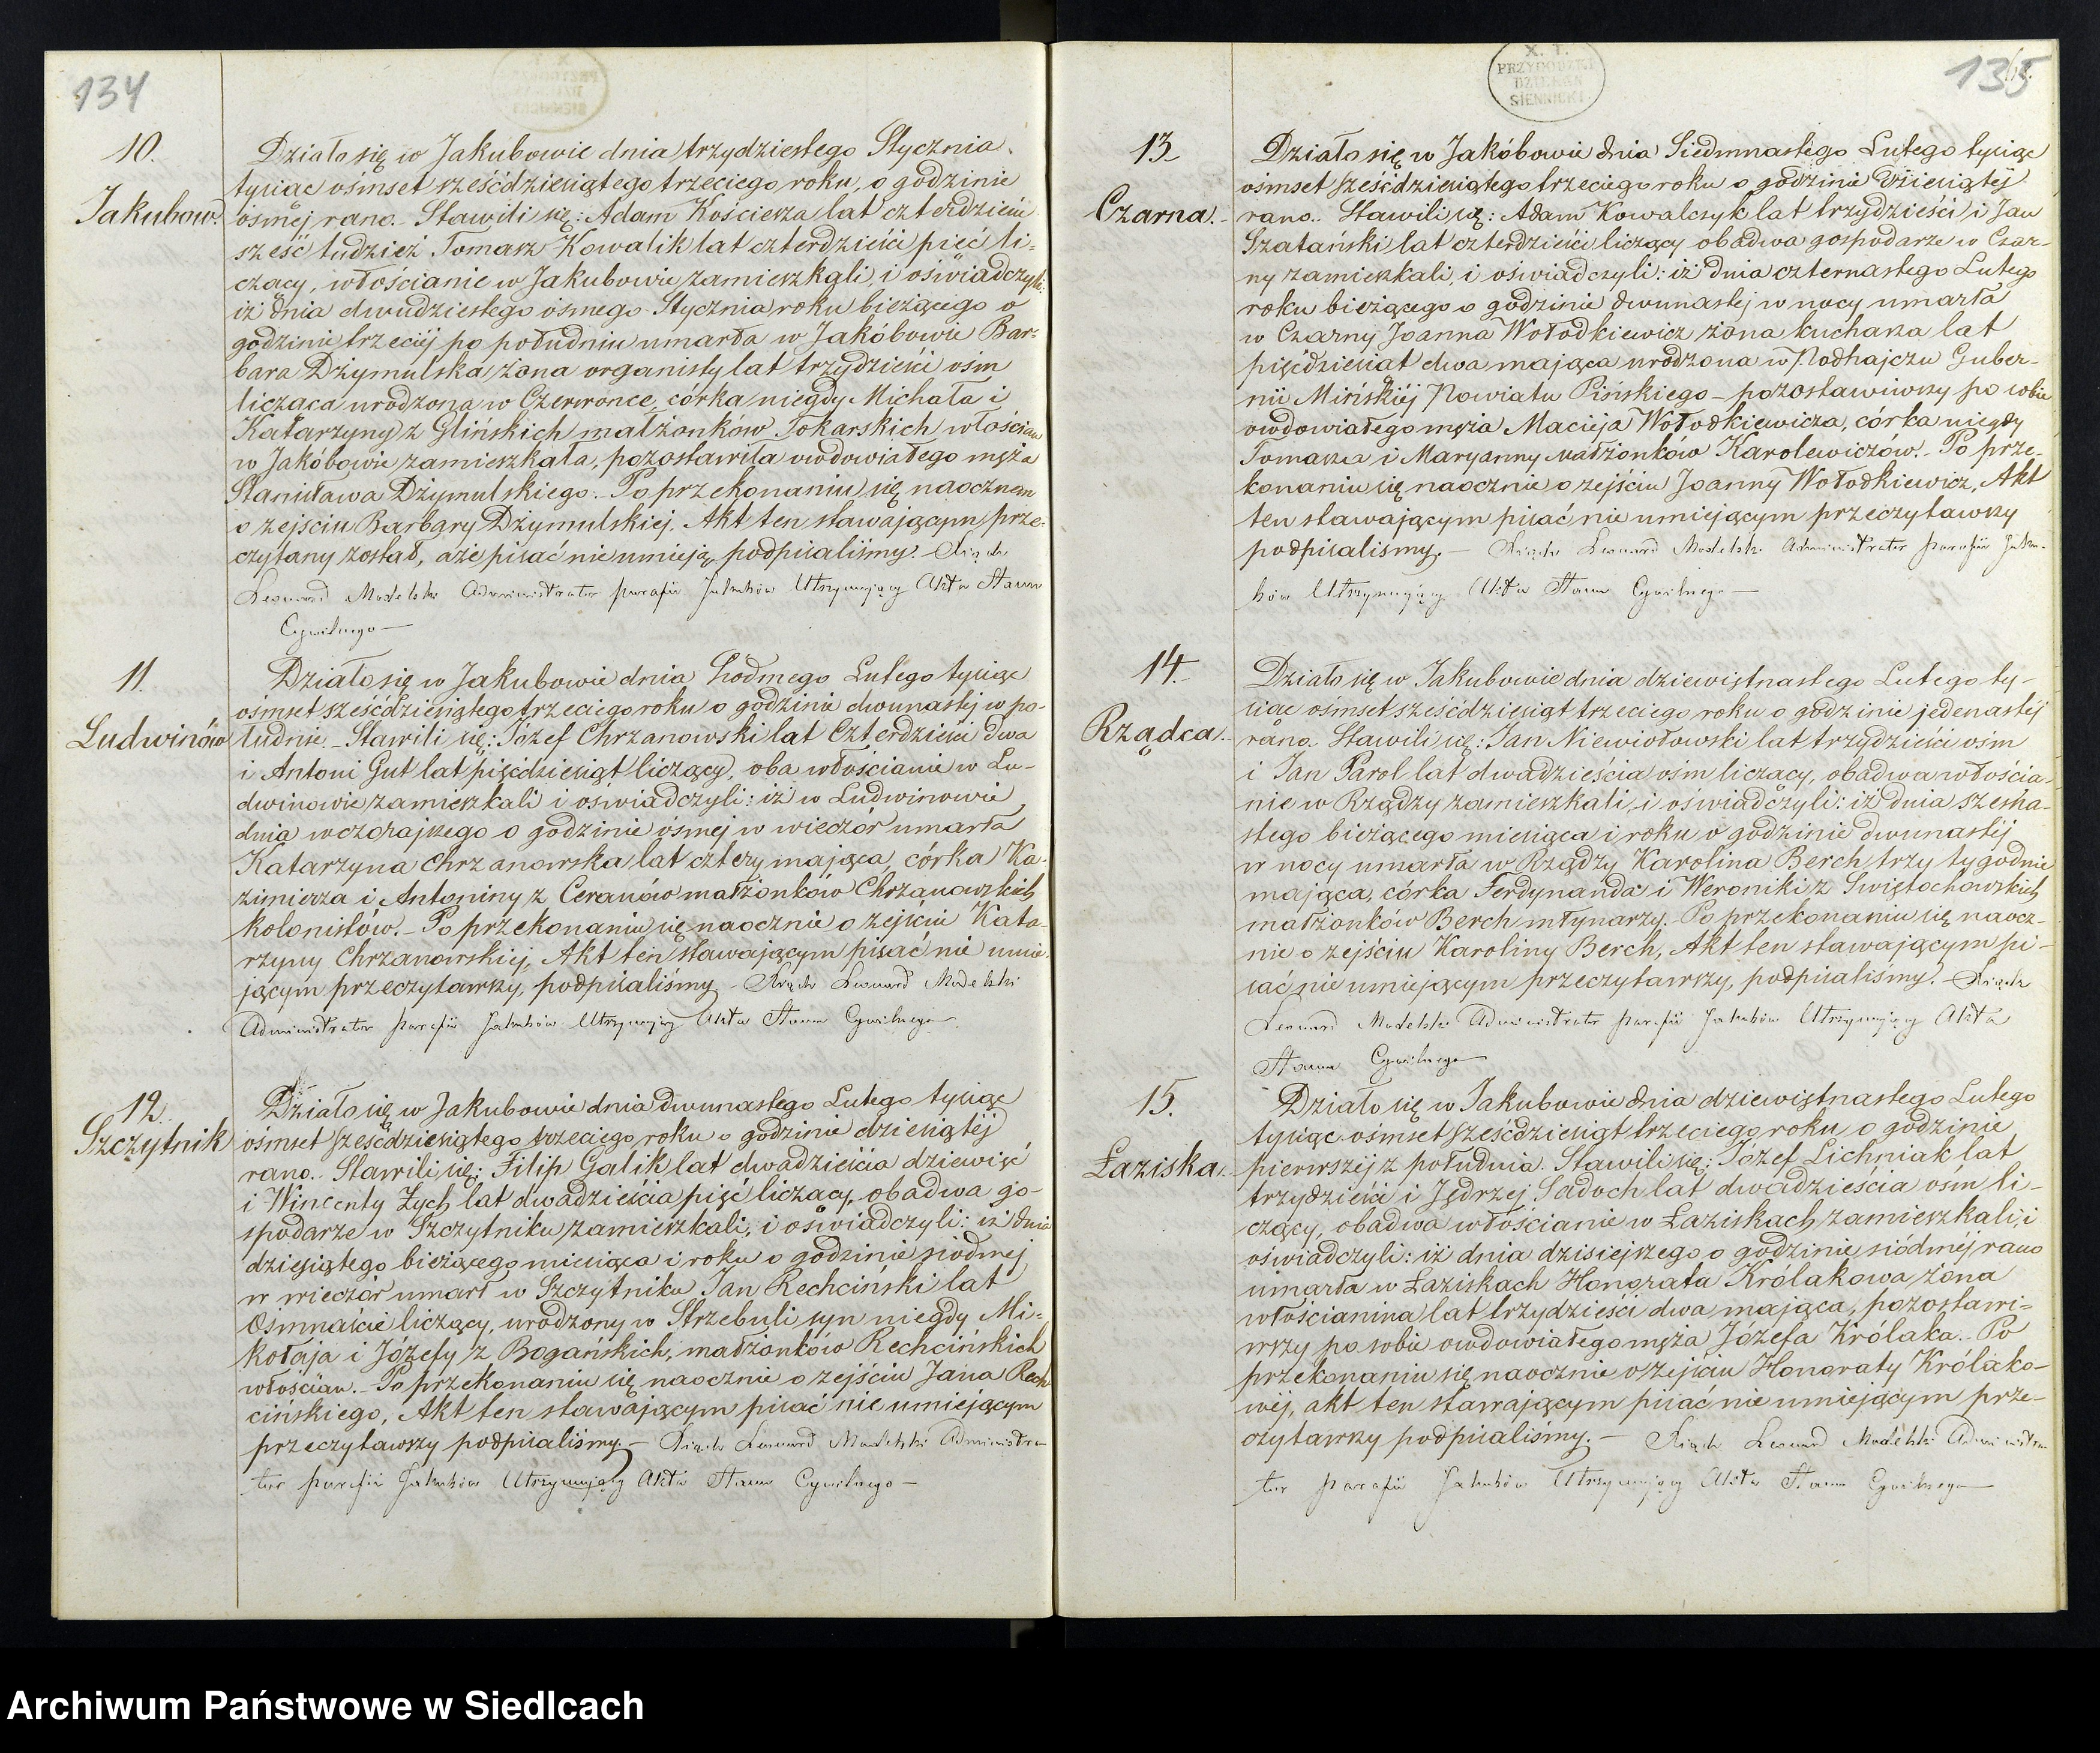 134
10.
Jakubow.
Działo się w Jakubowie dnia trzydziestego Stycznia
tysiąc ośmset sześćdziesiątego trzeciego roku, o godzinie
ósmej rano. Stawili się: Adam Kościesza lat czterdzieści
sześć tudzież Tomasz Kowalik lat czterdzieści pięć li-
czący, włościanie w Jakubowie zamieszkali, i oświadczyli:
iż dnia dwudziestego ósmego Stycznia roku bieżącego o
godzinie trzeciéj po południu umarła w Jakóbowie Bar-
bara Dżymulska żona organisty lat trzydzieści ośm
licząca urodzona w Czerwonce, córka niegdy Michała i
Katarzyny z Glińskich małżonków Tokarskich włościan
w Jakóbowie zamieszkała, pozostawiła owdowiałego męża
Stanisława Dżymulskiego. Po przekonaniu się naocznem
o zejściu Barbary Dżymulskiej. Akt ten stawającym prze-
czytany został, a że pisać nie umieją, podpisaliśmy. Ksiądz
Leonard Modelski Administrator parafii Jakubów Utrzymujący Akta Stanu
Cywilnego —
11.
Ludwinów
Działo się w Jakubowie dnia Siódmego Lutego tysiąc
ośmset sześćdziesiątego trzeciego roku o godzinie dwunastej w po-
łudnie. Stawili się: Józef Chrzanowski lat Czterdzieści dwa
i Antoni Gut lat pięćdziesiąt liczący, oba włościanie w Lu-
dwinowie zamieszkali i oświadczyli: iż w Ludwinowie
dnia wczorajszego o godzinie ósmej w wieczór umarła
Katarzyna Chrzanowska lat cztery mająca, córka Ka-
zimierza i Antoniny z Ceranów małżonków Chrzanowskich
kolonistów. – Po przekonaniu się naocznie o zejściu Kata-
rzyny Chrzanowskiej, Akt ten stawającym pisać nie umie-
jącym przeczytawszy, podpisaliśmy – Ksiądz Leonard Modelski
Administrator parafii Jakubów Utrzymujący Akta Stanu Cywilnego
12.
Szczytnik
Działo się w Jakubowie dnia dwunastego Lutego tysiąc
ośmset sześćdziesiątego trzeciego roku o godzinie dziesiątéj
rano. Stawili się: Filip Galik lat dwadzieścia dziewięć
i Wincenty Zych lat dwadzieścia pięć liczący, obadwa go-
spodarze w Szczytniku zamieszkali, i oświadczyli: iż dnia
dziesiątego bieżącego miesiąca i roku o godzinie siódmej
w wieczór umarł w Szczytniku Jan Rechciński lat
Ośmnaście liczący, urodzony w Strzebuli syn niegdy Mi-
kołaja i Józefy z Bogańskich, małżonków Rechcińskich
włościan. – Po przekonaniu się naocznie o zejściu Jana Rech-
cińskiego, Akt ten stawającym pisać nie umiejącym
przeczytawszy podpisaliśmy. – Ksiądz Leonard Modelski Administra-
tor parafii Jakubów Utrzymujący Akta Stanu Cywilnego —
X. T.
PRZYGODZKI
DZIEKAN
SIENNICKI
135
13
Czarna.
Działo się w Jakóbowie dnia Siedmnastego Lutego tysiąc
ośmset sześćdziesiątego trzeciego roku o godzinie dziesiątéj
rano. Stawili się: Adam Kowalczyk lat trzydzieści i Jan
Szatański lat czterdzieści liczący obadwa gospodarze w Czar-
ny zamieszkali, i oświadczyli: iż dnia czternastego Lutego
roku bieżącego o godzinie dwunastej w nocy umarła
w Czarny Joanna Wołodkiewicz żona kucharza lat
pięćdziesiąt dwa mająca urodzona w Podhajczu Guber-
nii Mińskiéj Powiatu Pińskiego – pozostawiwszy po sobie
owdowiałego męża Macieja Wołodkiewicza, córka niegdy
Tomasza i Maryanny małżonków Karolewiczów. – Po prze-
konaniu się naocznie o zejściu Joanny Wołodkiewicz, Akt
ten stawającym pisać nie umiejącym przeczytawszy
podpisaliśmy. – Ksiądz Leonard Modelski Administrator parafii Jaku-
bów Utrzymujący Akta Stanu Cywilnego —
14.
Rządca.
Działo się w Jakubowie dnia dziewiętnastego Lutego ty-
siąc ośmset sześćdziesiąt trzeciego roku o godzinie jedenastéj
rano. Stawili się: Jan Niewiołowski lat trzydzieści ośm
i Jan Parol lat dwadzieścia ośm liczący, obadwa włościa-
nie w Rządzy zamieszkali, i oświadczyli: iż dnia szesna-
stego bieżącego miesiąca i roku o godzinie dwunastéj
w nocy umarła w Rządzy Karolina Berch trzy tygodnie
mająca, córka Ferdynanda i Weroniki z Swiętochowskich
małżonków Berch młynarzy. – Po przekonaniu się naocz-
nie o zejściu Karoliny Berch, Akt ten stawającym pi-
sać nie umiejącym przeczytawszy, podpisaliśmy. – Ksiądz
Leonard Modelski Administrator parafii Jakubów Utrzymujący Akta
Stanu Cywilnego
15.
Łaziska.
Działo się w Jakubowie dnia dziewiętnastego Lutego
tysiąc ośmset sześćdziesiąt trzeciego roku o godzinie
pierwszéj z południa. Stawili się: Józef Lichniak lat
trzydzieści i Jędrzej Sadoch lat dwadzieścia ośm li-
czący, obadwa włościanie w Łaziskach zamieszkali, i
oświadczyli: iż dnia dzisiejszego o godzinie siódméj rano
umarła w Łaziskach Honorata Królakowa żona
włościanina lat trzydzieści dwa mająca, pozostawi-
wszy po sobie owdowiałego męża Józefa Królaka. – Po
przekonaniu się naocznie o zejściu Honoraty Królako-
wéj, akt ten stawającym pisać nie umiejącym prze-
czytawszy podpisaliśmy. – Ksiądz Leonard Modelski Administra-
tor parafii Jakubów Utrzymujący Akta Stanu Cywilnego
Archiwum Państwowe w Siedlcach